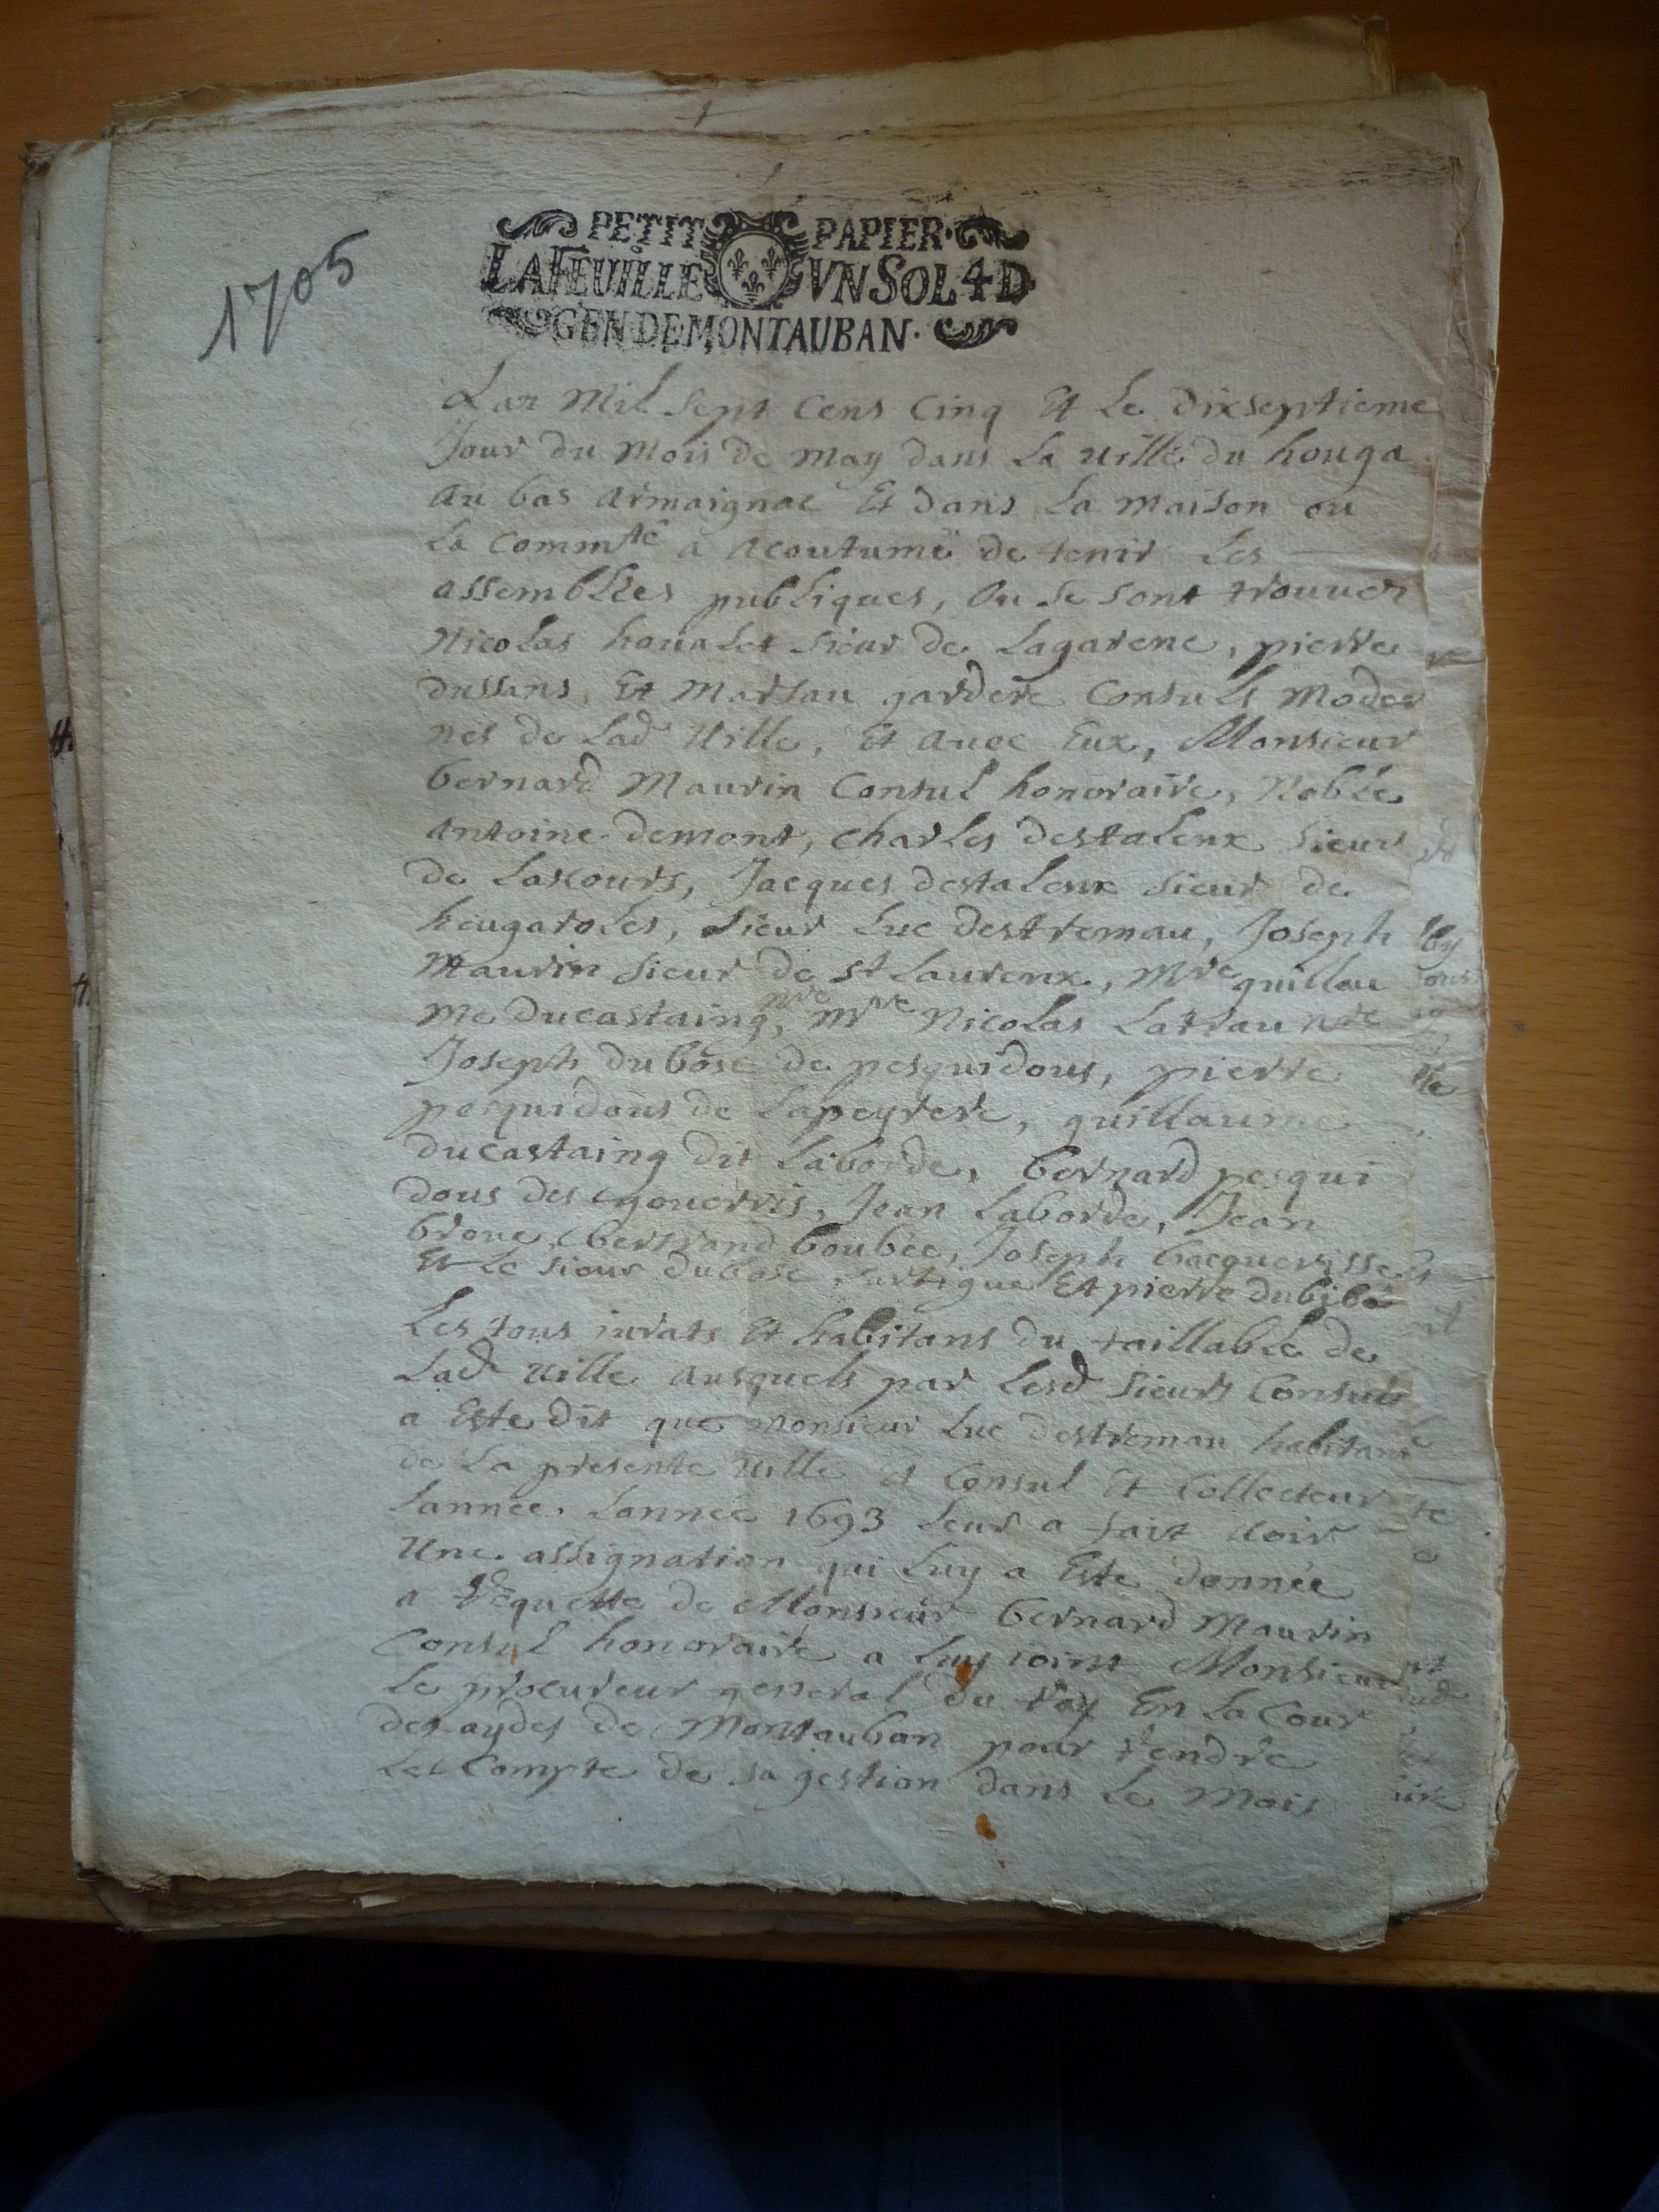 1705
PETIT PAPIER
LA FEUILLE VN SOL 4 D
GEN DE MONTAUBAN
Lan Mil Sept Cens Cinq Et Le dixseptieme
Jour du Mois de May dans La ville du houga
au bas armaignac Et dans La Maison ou
La Commte a acoutumé de tenir Les
assemblées publiques, Ou se sont trouuer
Nicolas houalet sieur de Lagarene, pierre
dussans, Et Marsau gardere Consuls Moder
nes de Lad Uille, Et auec Eux, Monsieur
bernard Maurin Consul honoraire, Noble
antoine demont, charles destalenx sieur
de Lascours, Jacques destalenx sieur de
heugaroles, sieur Luc destremau, Joseph
Maurin sieur de st Laurenx, Mre guillau
me ducastaing, nre Mre Nicolas Latrau nre
Joseph dubosc de pesquidous, pierre
pesquidous de Lapeyrere, guillaume
ducastaing dit Laborde, bernard pesqui
dous des Jean Laborde, Jean
broue, bertrand boubée, Joseph bacquerisse
Et Le sieur dubosc Lartigue Et pierre dubibé
Les tous iurats Et habitans du taillable de
Lad uille ausquels par Lesd sieurs Consuls
a Este dit que monsieur Luc destremau habitant
de La presente uille Et Consul Et Collecteur
Lannée. Lannée 1693 Leur a fait uoir
Une assignation qui Luy a Este donnée
a Requette de Monsieur bernard Maurin
Consul honoraire a Luy ioint Monsieur
Le procureur general du Roy En La Cour
des aydes de Montauban pour rendre
Le Compte de sa gestion dans Le Mois